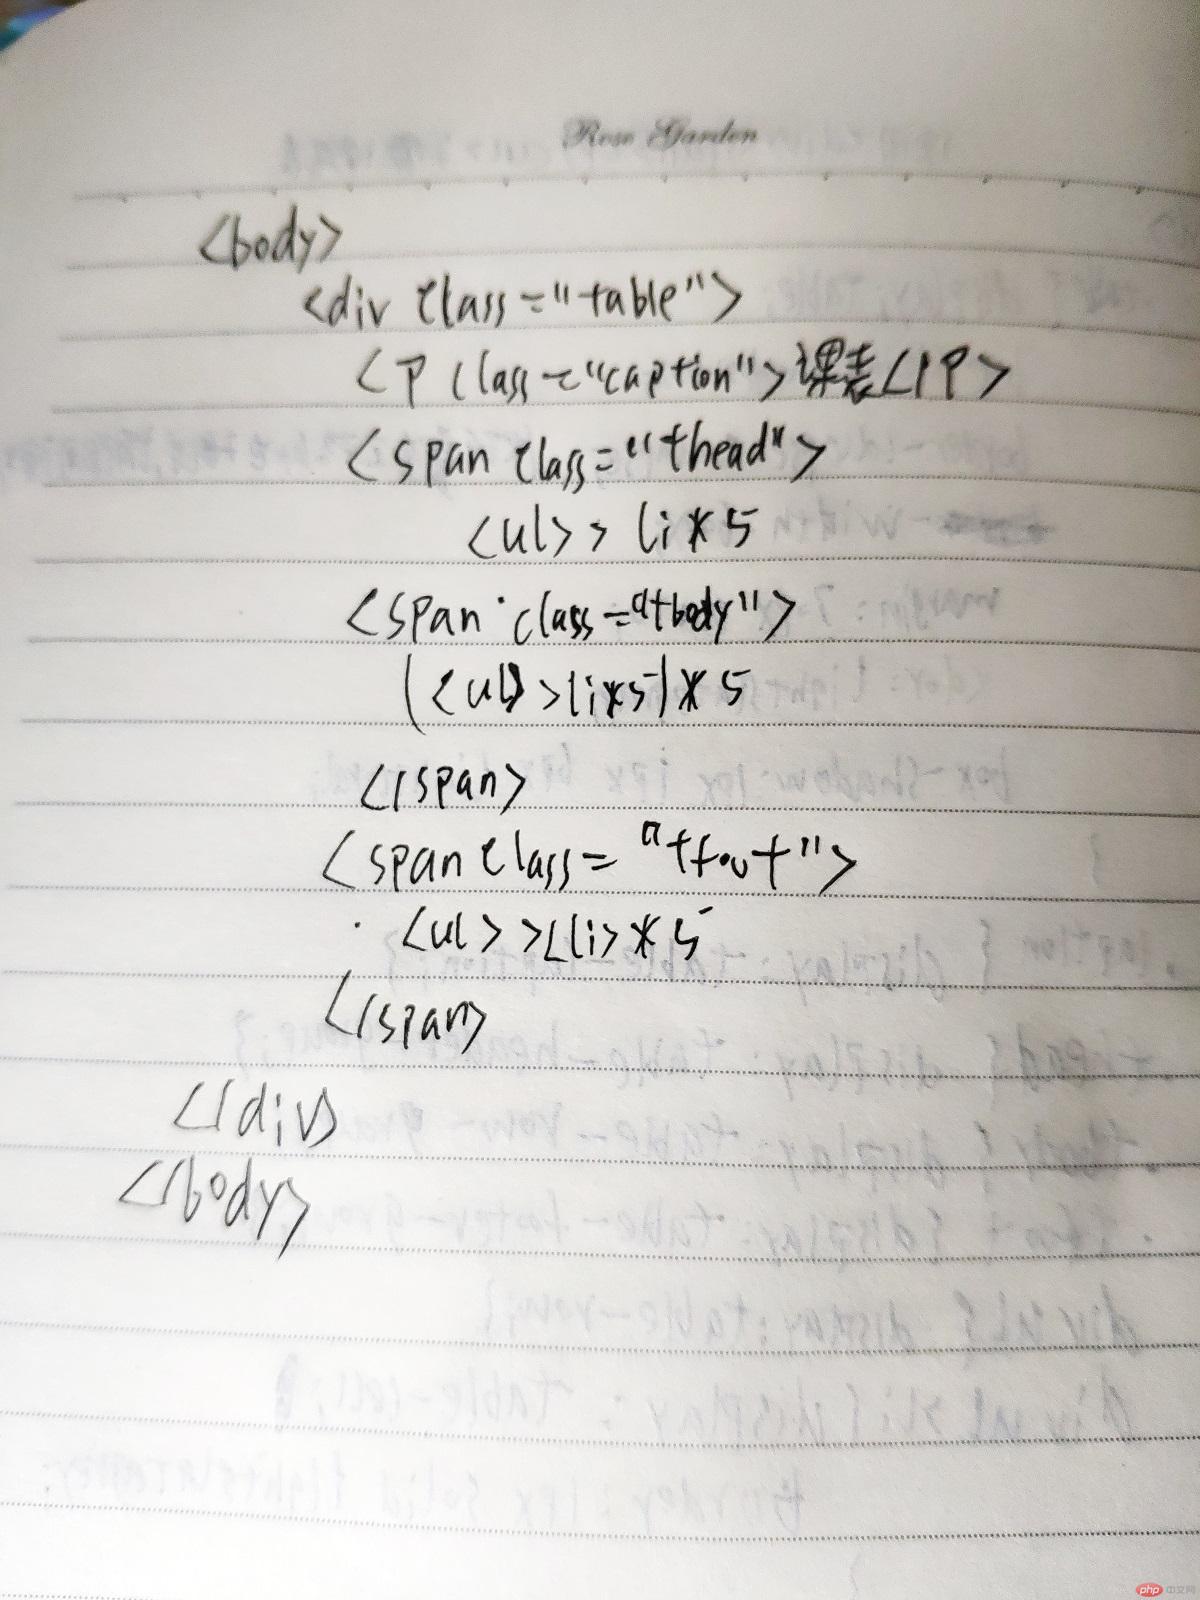 Rose Garden
<body>
<div class="table">
<P class="caption">课表</P>
<span class="thead">
<ul>> li*5
<span class="tbody">
(<ul>>li*5)*5
</span>
<span class="tfout">
<ul>><li>*5
</span>
</div>
</body>
php 中文网